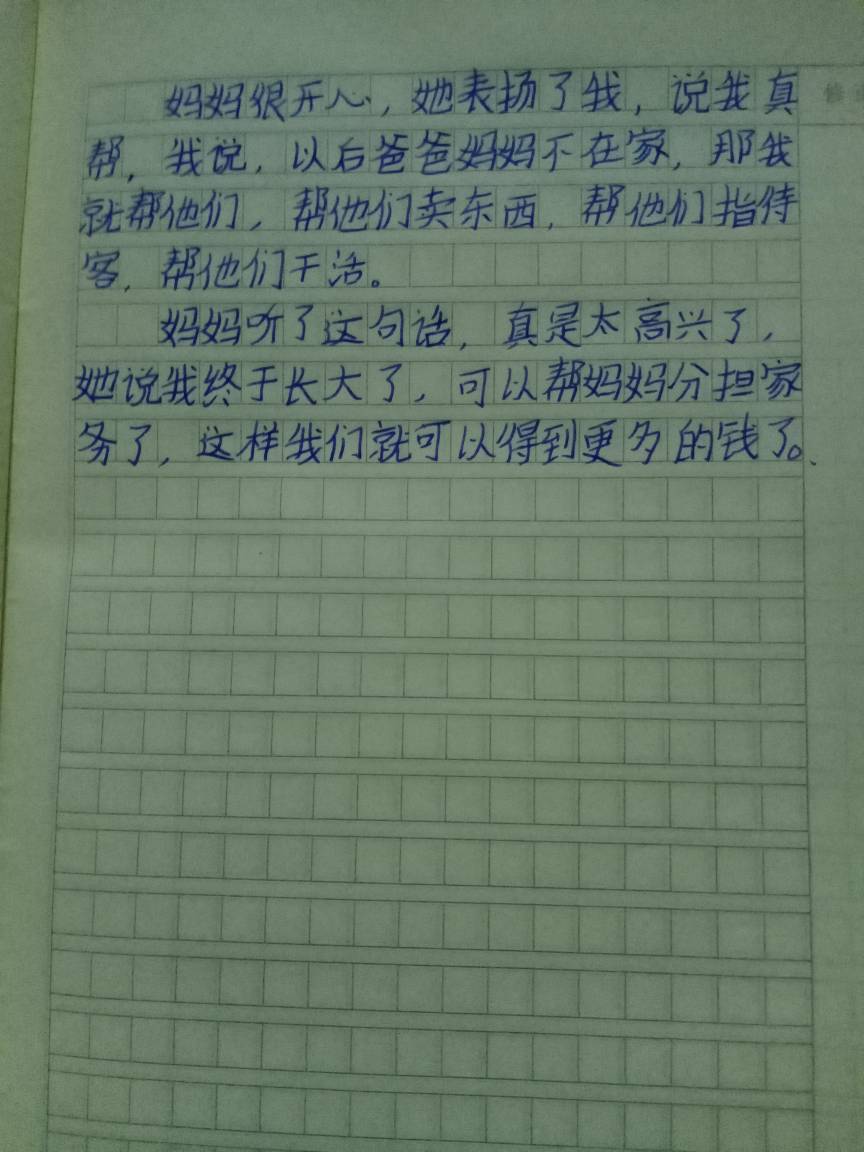 妈妈很开心，她表扬了我，说我真
帮，我说，以后爸爸妈妈不在家，那我
就帮他们，帮他们卖东西，帮他们指待
客，帮他们干活。
妈妈听了这句话，真是太高兴了，
她说我终于长大了，可以帮妈妈分担家
务了，这样我们就可以得到更多的钱了。